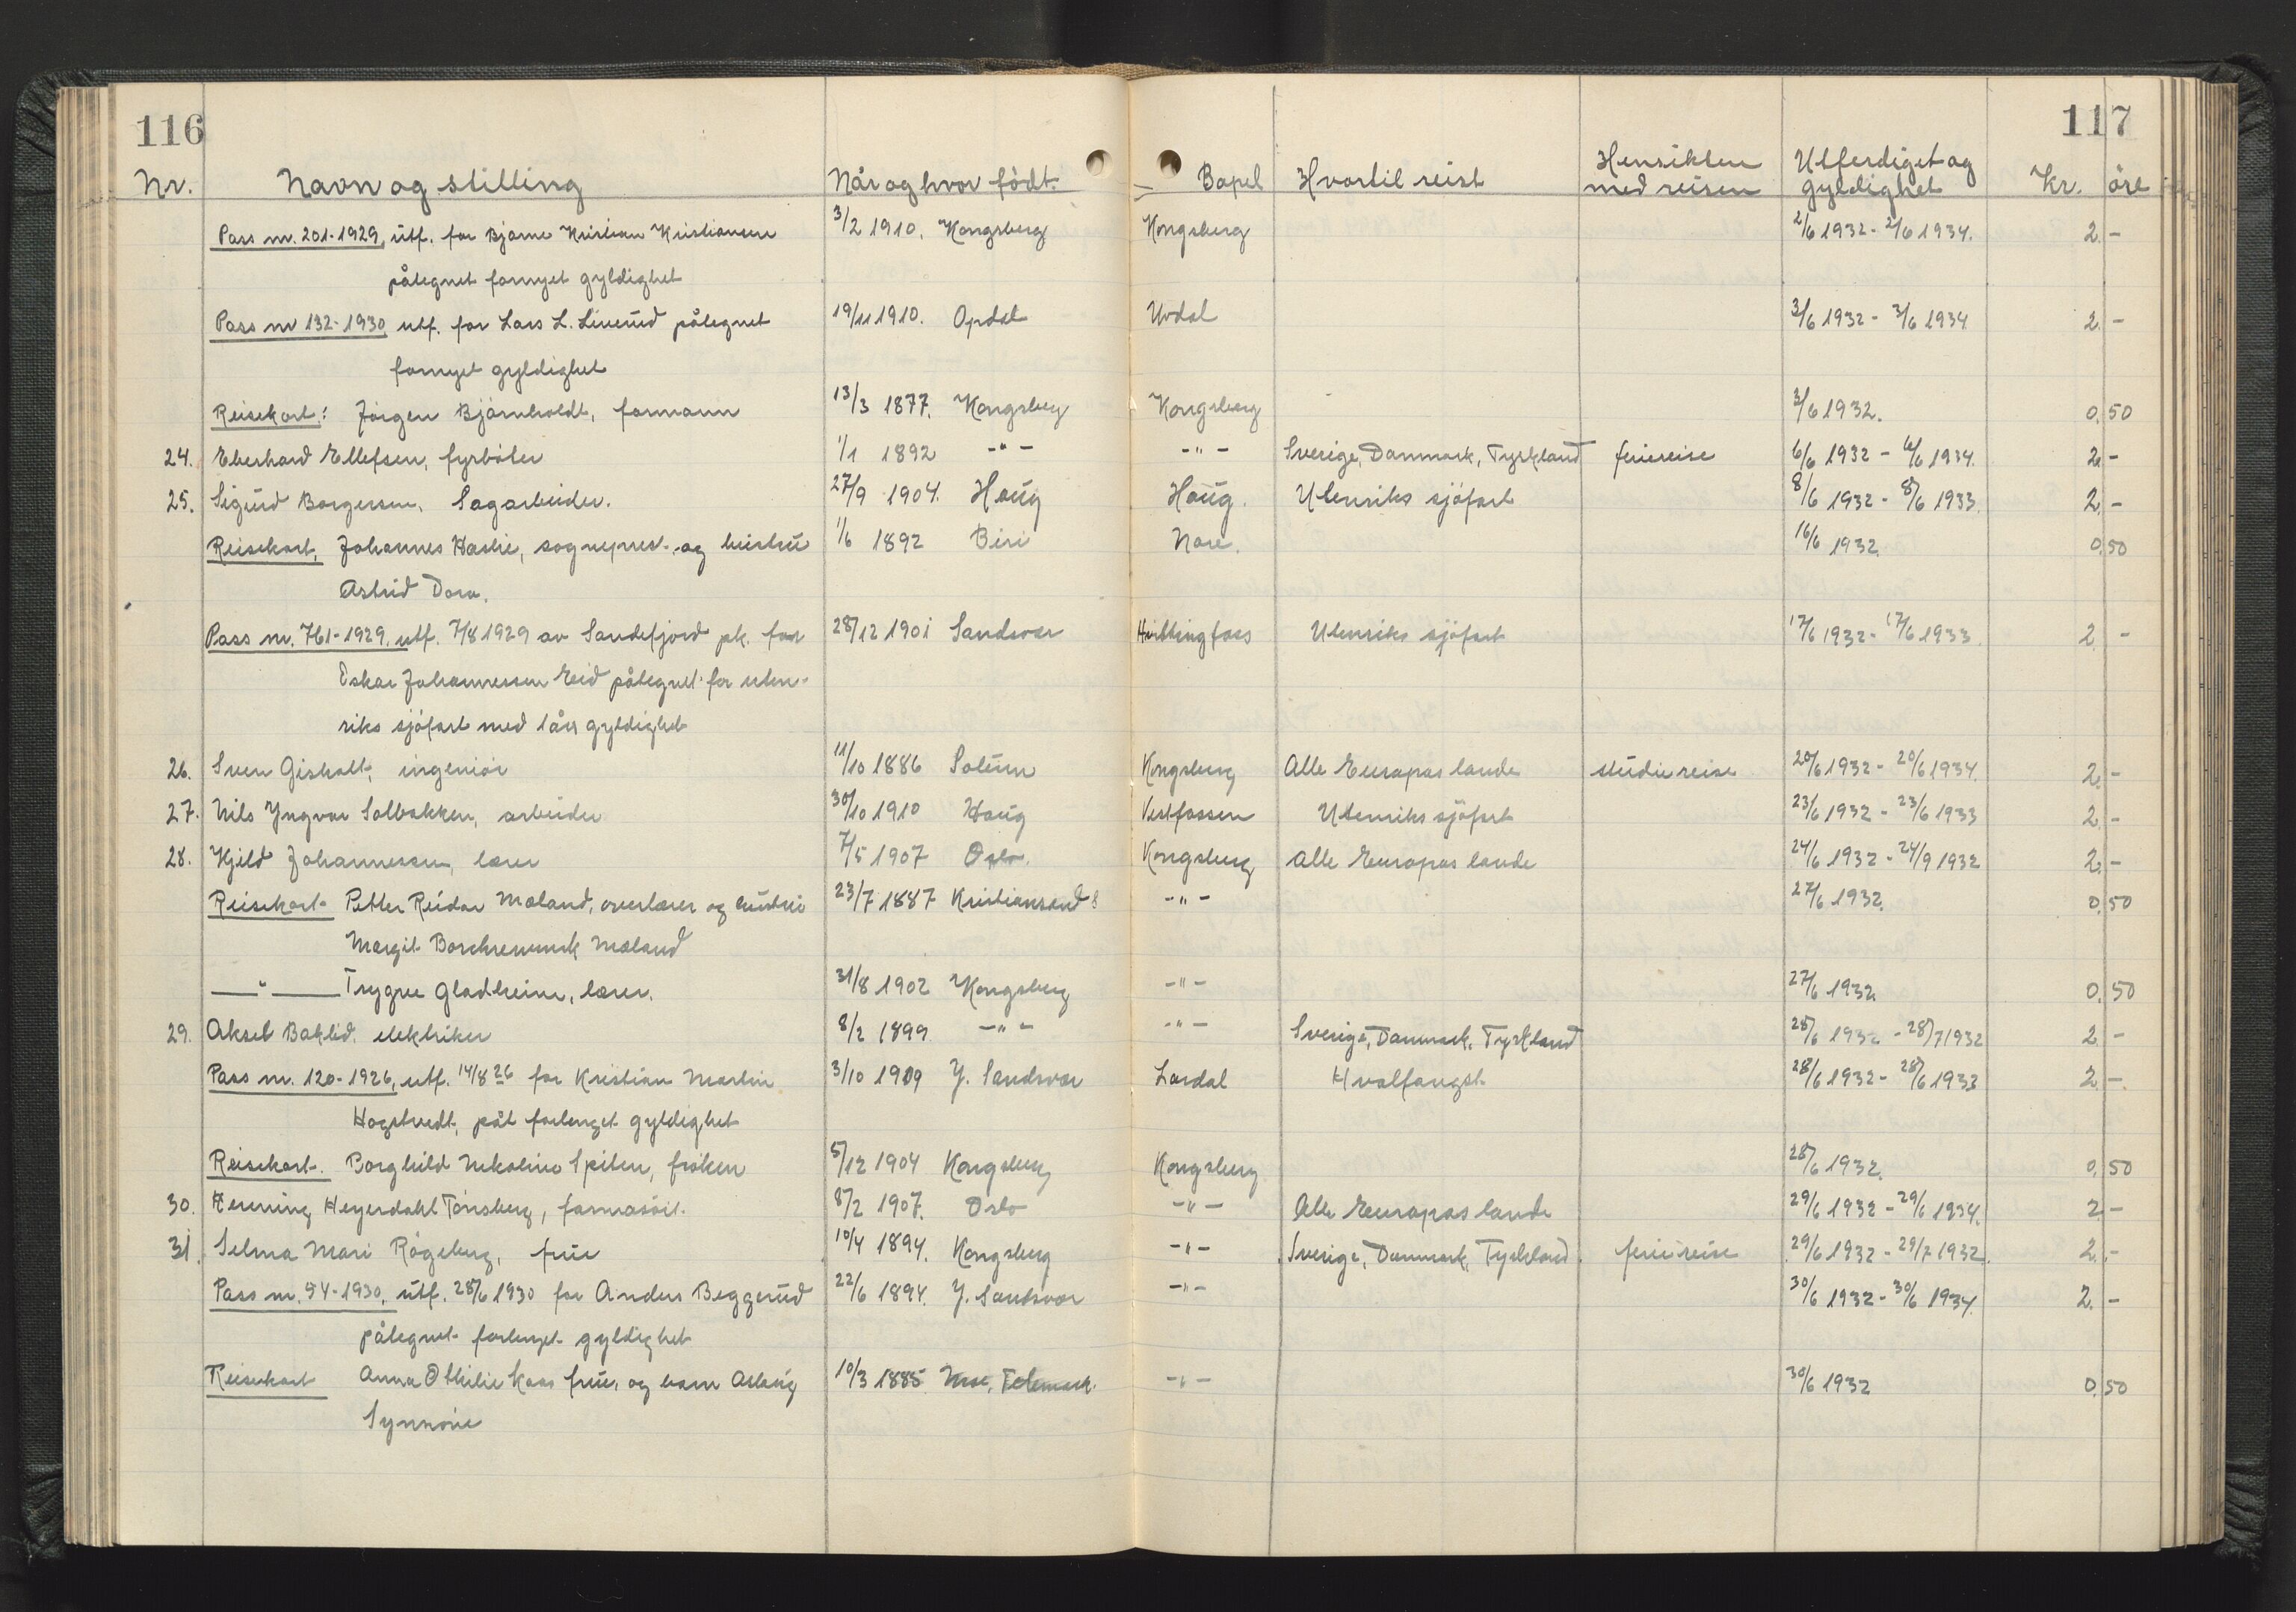 116 117
Nr. Navn og stilling Når og hvor födt. Bopel Hvortil reist Hensikten med reisen Utferdiget og gyldighet Kr. öre
Pass nr. 201-1929, utf. for Bjarne Kristian Kristiansen 3/2 1910. Kongsberg Kongsberg 2/6 1932 - 2/6 1934. 2. -
påtegnet fornyet gyldighet
Pass nr 132-1930 utf. for Lars L. Liverud påtegnet 19/11 1910. Opdal Uvdal 3/6 1932 - 3/6 1934 2. -
fornyet gyldighet
Reisekort: Jörgen Björnholdt, formann 13/3 1877. Kongsberg Kongsberg 3/6 1932. 0. 50
24. Eberhard Ellefsen, fyrböter 1/1 1892 -"- -"- Sverige, Danmark, Tyskland feriereise 6/6 1932 - 6/6 1934. 2. -
25. Sigurd Borgersen, Sagarbeider. 27/9 1904. Haug Haug. Utenriks sjöfart 8/6 1932 - 8/6 1933. 2. -
Reisekort, Johannes Haslie, sogneprest og hustru 1/6 1892 Biri Nore. 16/6 1932. 0. 50
Astrid Dora.
Pass nr. 761-1929, utf. 7/8 1929 av Sandefjord pk. for 28/12 1901 Sandsvær Hvittingfoss Utenriks sjöfart 17/6 1932 - 17/6 1933. 2 -
Oskar Johannessen Eid påtegnet for uten-
riks sjöfart med 1 års gyldighet
26. Sven Gisholt, ingeniör 11/10 1886 Solum Kongsberg Alle Europas lande studiereise 20/6 1932 - 20/6 1934. 2. -
27. Nils Yngvar Solbakken, arbeider 30/10 1910 Haug Vestfossen Utenriks sjöfart 23/6 1932 - 23/6 1933 2. -
28. Kjeld Johannessen, lærer 7/5 1907 Oslo. Kongsberg Alle Europas lande 24/6 1932 - 24/9 1932 2. -
Reisekort Petter Reidar Mæland, overlærer og hustru 23/7 1887 Kristiansand S -"- 27/6 1932. 0. 50
Margit Borchrevinck Mæland
-"- Trygve Gladheim, lærer. 31/8 1902 Kongsberg -"- 27/6 1932. 0. 50
29. Aksel Baklid, elektriker 8/2 1899 -"- -"- Sverige, Danmark, Tyskland 28/6 1932 - 28/7 1932 2 -
Pass nr. 120-1926, utf. 14/8 26 for Kristian Martin 3/10 1909 Y. Sandsvær Lardal Hvalfangst 28/6 1932 - 28/6 1933 2. -.
Hogstvedt, påt forlenget gyldighet
Reisekort. Borghild Nikoline Spiten, fröken 5/12 1904 Kongsberg Kongsberg 28/6 1932. 0. 50
30. Henning Heyerdahl Tönsberg, farmasöit. 8/2 1907. Oslo -"- Alle Europas lande 29/6 1932 - 29/6 1934. 2 -
31. Selma Mari Rögeberg, frue 10/4 1894. Kongsberg -"- Sverige, Danmark, Tyskland. feriereise 29/6 1932 - 29/7 1932. 2. -
Pass nr. 54-1930, utf. 28/6 1930 for Anders Beggerud 22/6 1894. Y. Sandsvær -"- 30/6 1932 - 30/6 1934. 2. -
påtegnet forlenget gyldighet
Reisekort Anna Othilie Kaas frue, og barn Aslaug 10/3 1885 Telemark. -"- 30/6 1932 0. 50
Synnöve